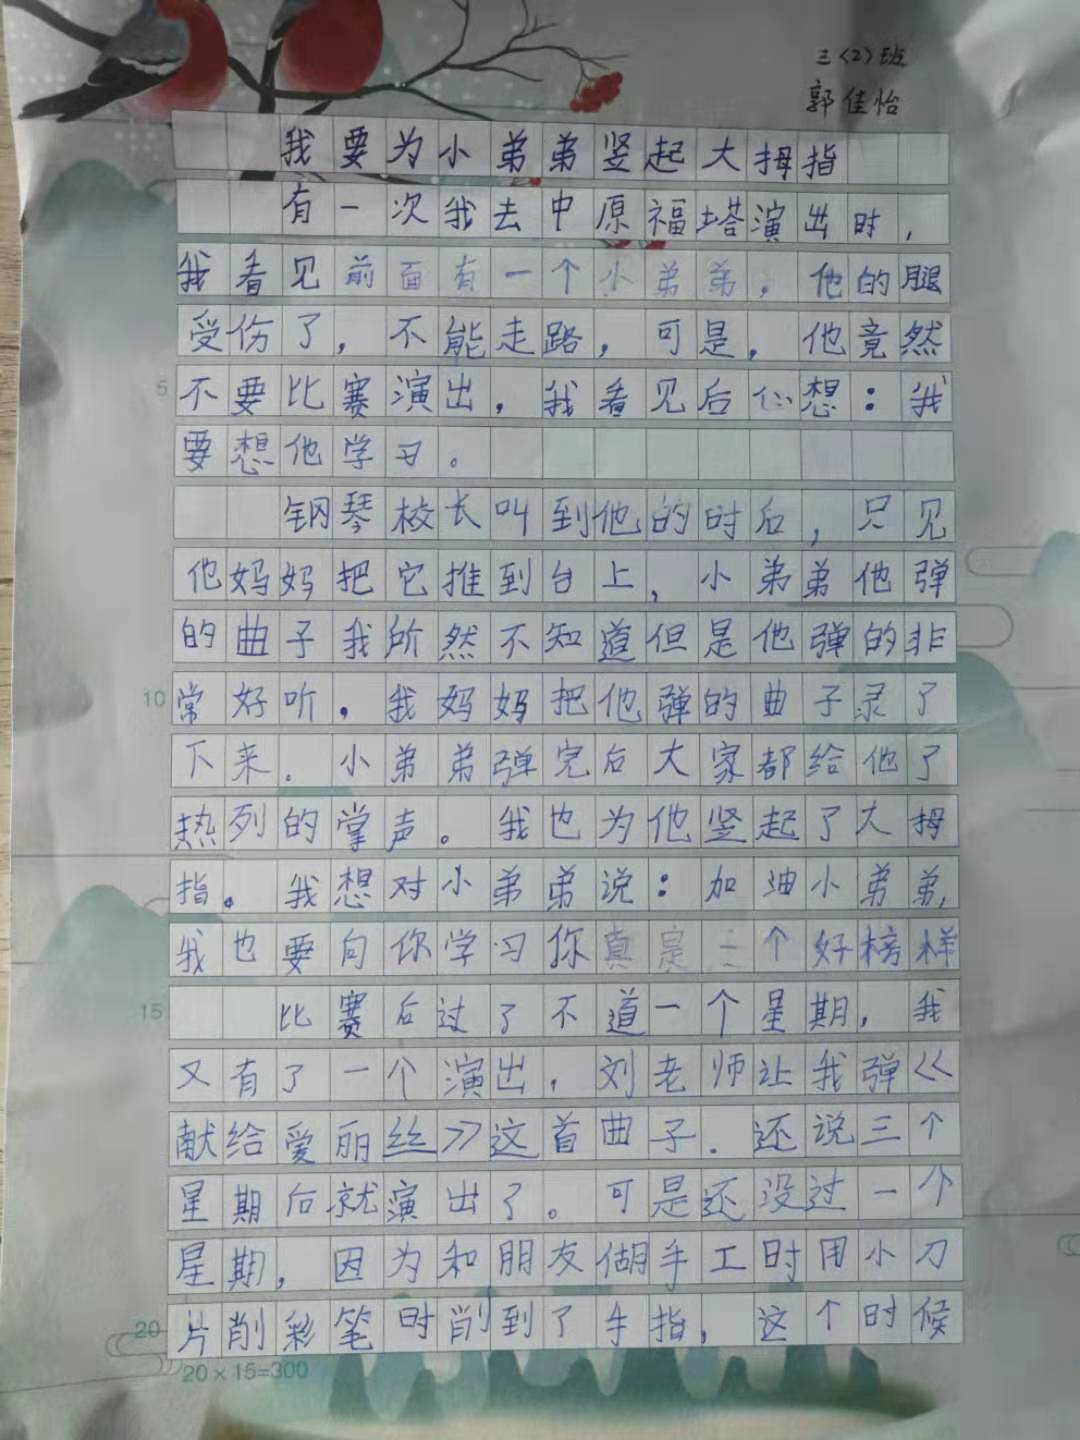 三〈2〉班
郭佳怡
我要为小弟弟竖起大拇指
有一次我去中原福塔演出时，
我看见前面有一个小弟弟，他的腿
受伤了，不能走路，可是，他竟然
5
不要比赛演出，我看见后心想：我
要想他学习。
钢琴校长叫到他的时后，只见
他妈妈把它推到台上，小弟弟他弹
的曲子我所然不知道但是他弹的非
10
常好听，我妈妈把他弹的曲子录了
下来．小弟弟弹完后大家都给他了
热列的掌声。我也为他竖起了大拇
指。我想对小弟弟说：加油小弟弟，
我也要向你学习你真是一个好榜样
15
比赛后过了不道一个星期，我
又有了一个演出，刘老师让我弹《
献给爱丽丝》这首曲子．还说三个
星期后就演出了。可是还没过一个
星期，因为和朋友做手工时用小刀
20
片削彩笔时削到了手指，这个时候
20×15=300